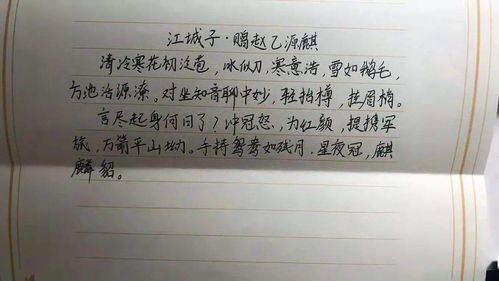 江城子·赐赵乙源麒
清冷寒花初泛苞,冰似刀,寒意浩,雪如鹅毛,
方池治源潦。对坐知音聊中妙,轻抬樽,挂眉梢。
言尽起身何问了?冲冠怒,为红颜,提携军
旅,万箭平山坳。手持鸳鸯如残月,星夜冠,麒
麟貂。